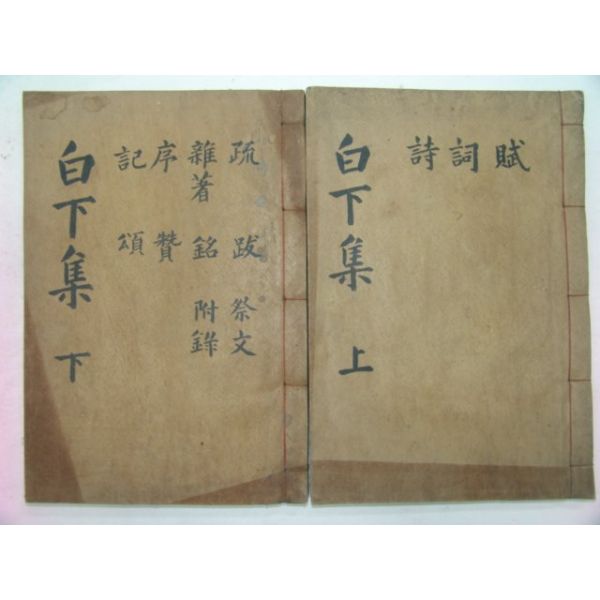 賦
詞
詩
白下集 上
疏 跋 祭文
雜著 銘 附錄
序 贊
記 頌
白下集 下